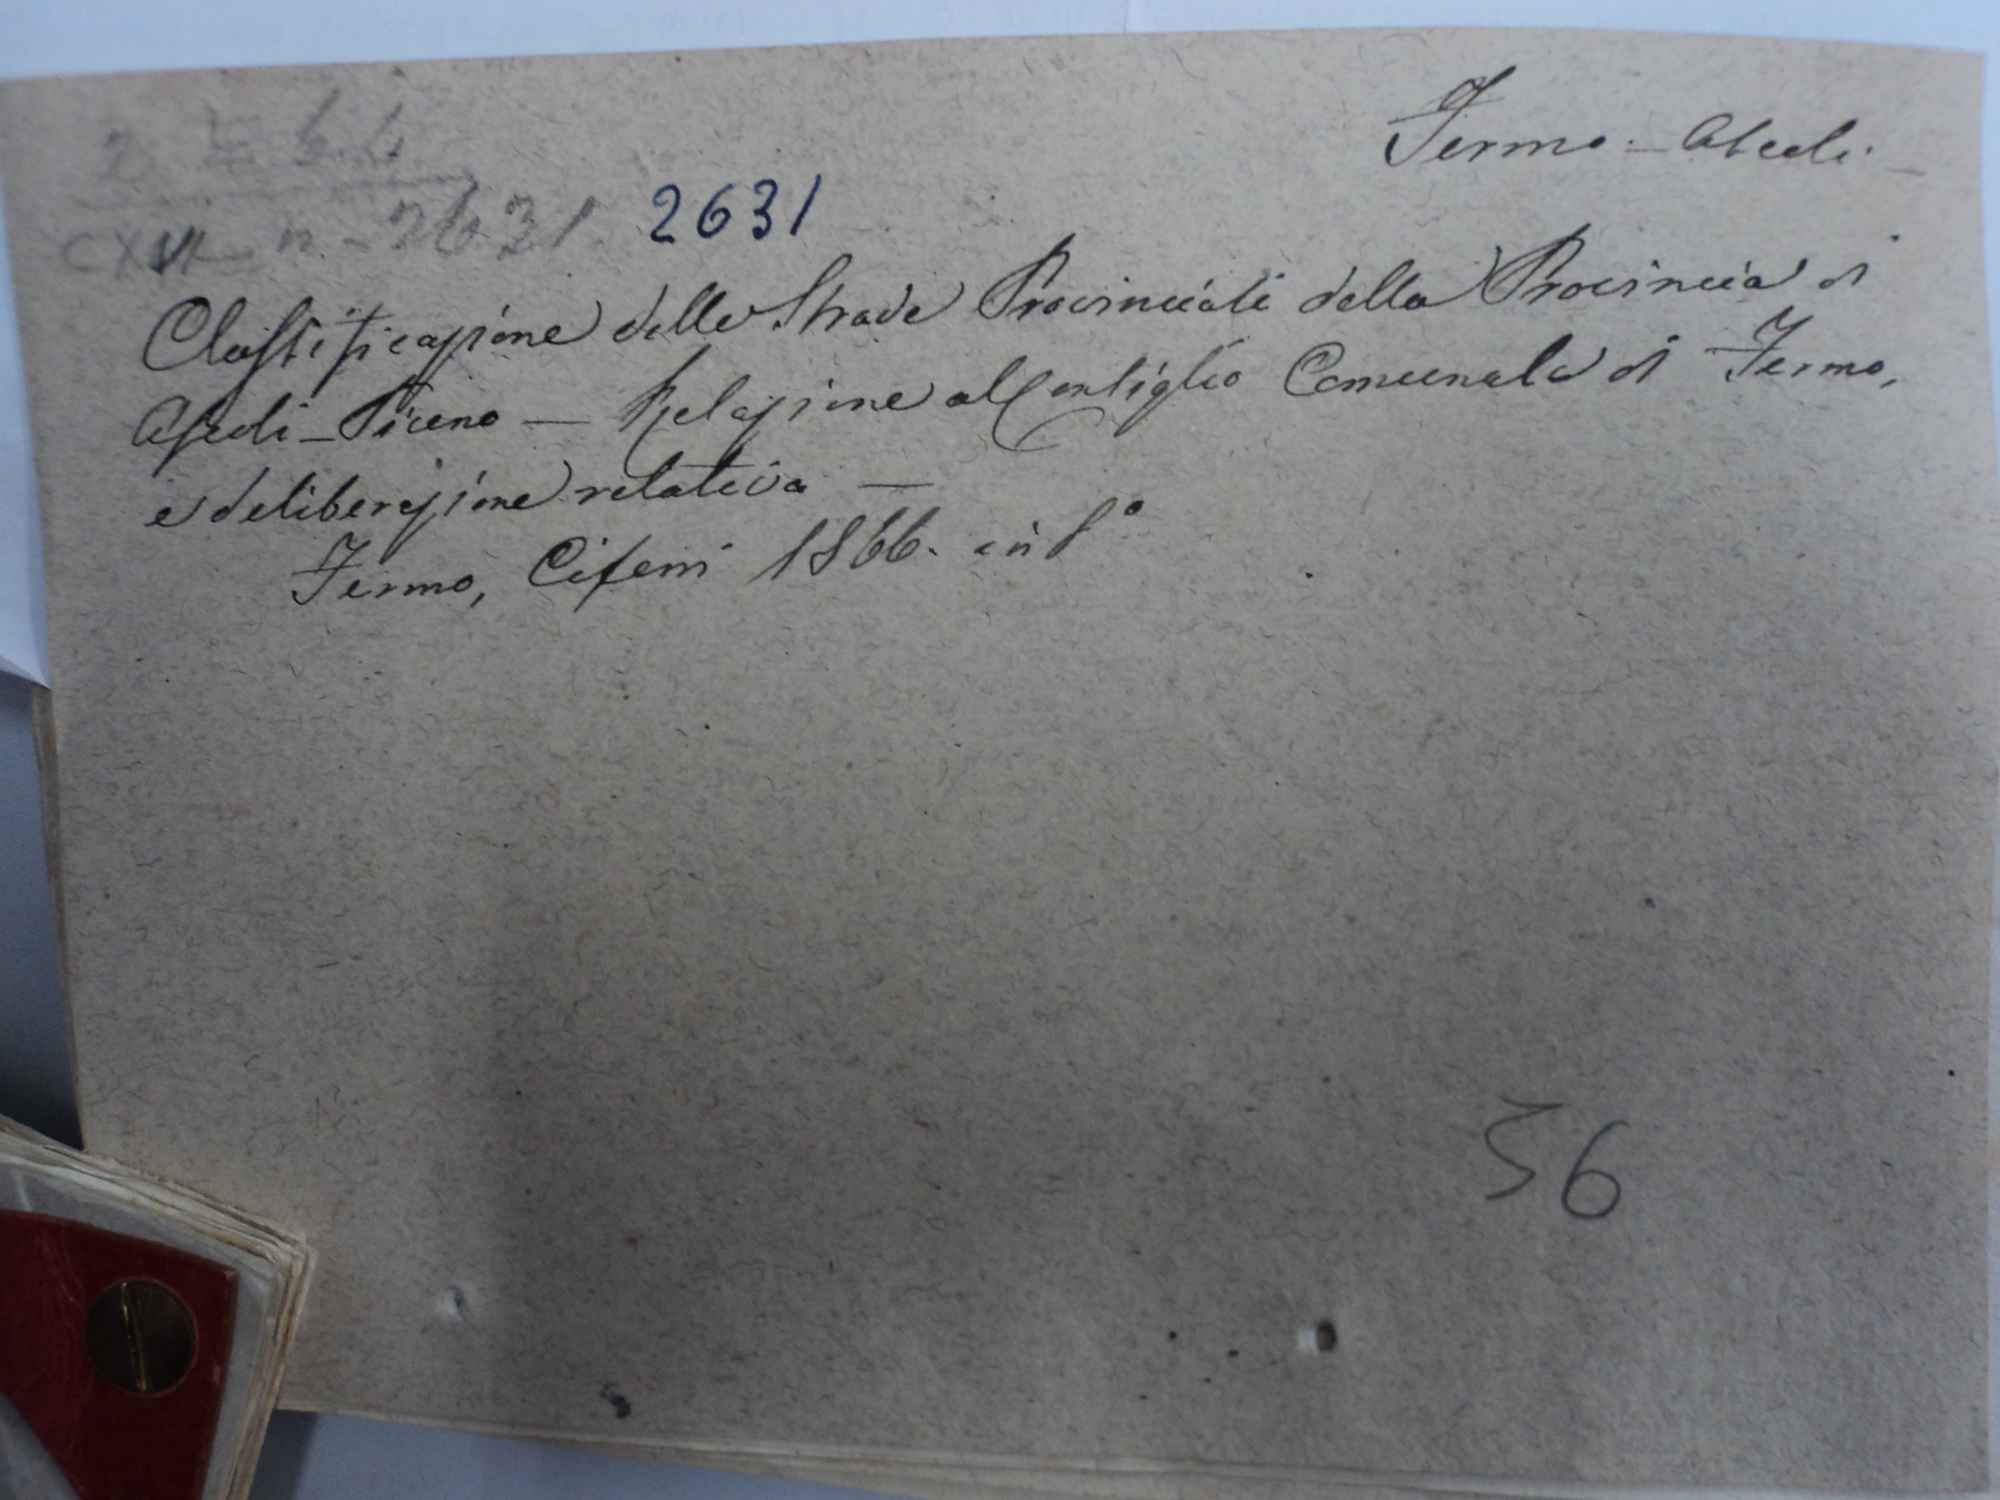 Fermo - Ascoli -
2 Z 6 6
CXVI n - 2631. 2631
Classificazione delle Strade Provinciali della Provincia di
Ascoli-Piceno — Relazione al Consiglio Comunale di Fermo,
e deliberazione relativa —
Fermo, Ciferri 1866. in 8°
56